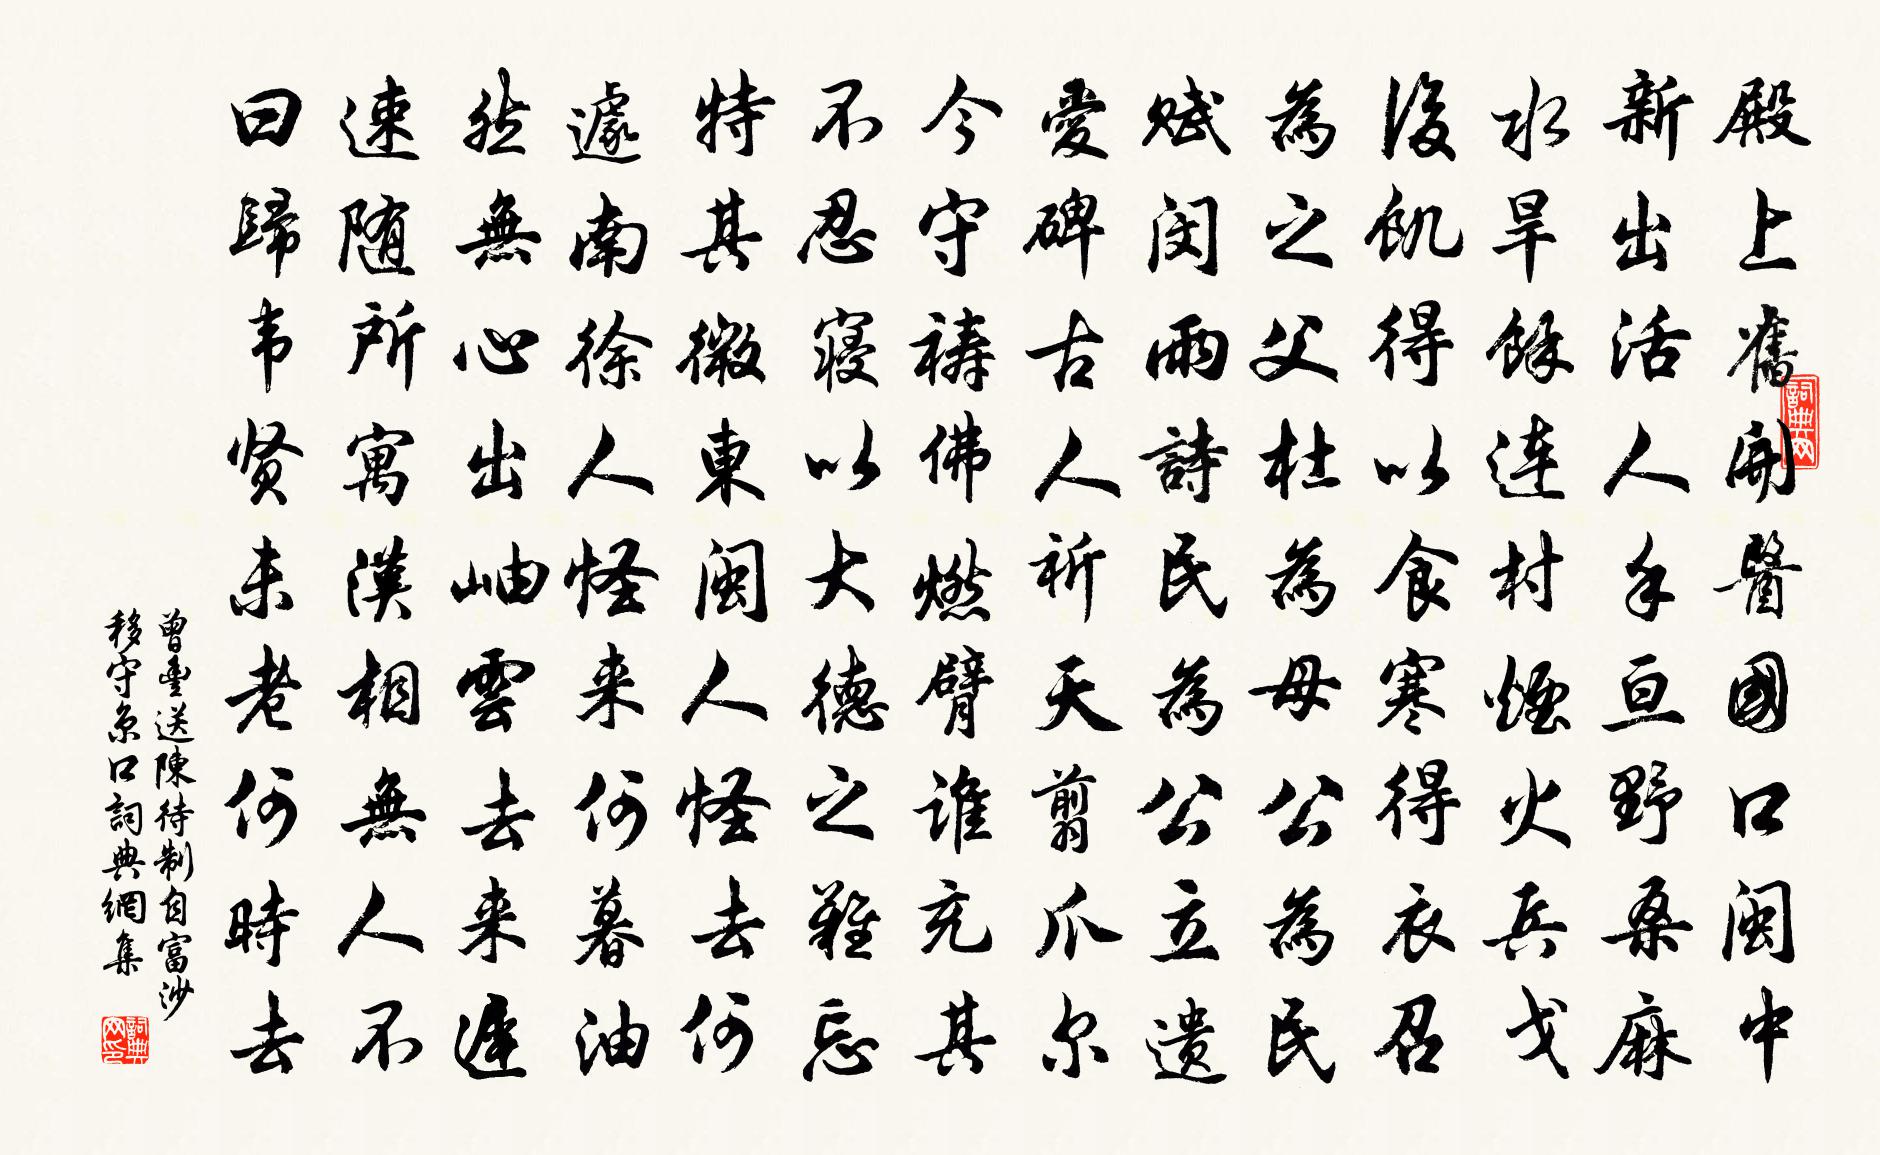 殿上舊開醫國口閩中
新出活人手亘野桑麻
水旱餘連村煙火兵戈
後飢得以食寒得衣召
為之父杜為母公為民
賦閔雨詩民為公立遗
愛碑古人祈天剪爪尔
今守祷佛燃臂谁充其
不忍寝以大德之難忘
特其微東閩人怪去何
遽南徐人怪来何暮油
然無心出岫雲去来遲
速随所寓漠相無人不
曰歸韦贤未老何時去
曾豊送陳待制自富沙
移守京口詞典網集
詞典网
詞典网印